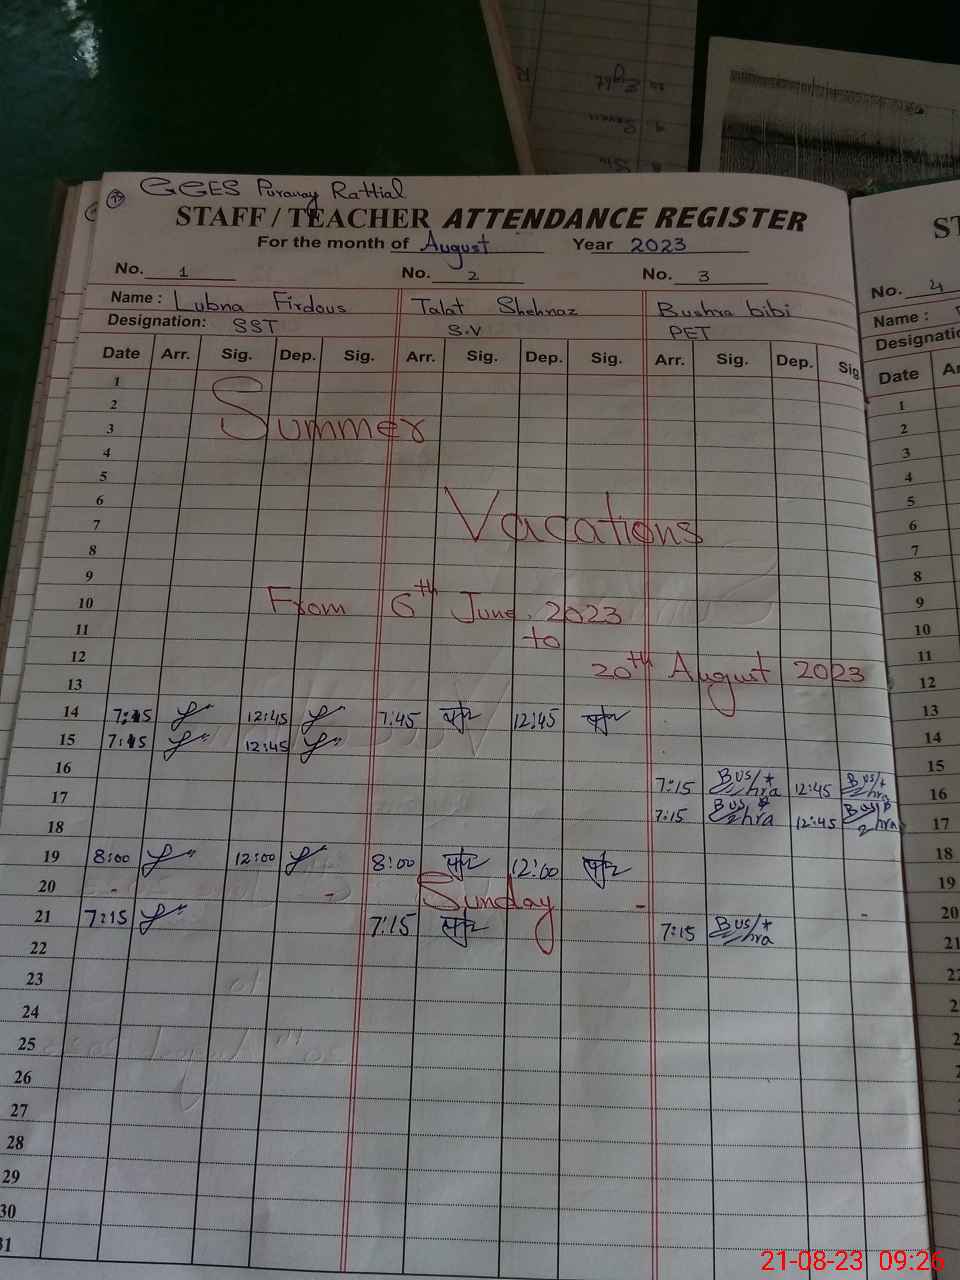 GGES Puranay Rattial
STAFF / TEACHER ATTENDANCE REGISTER
For the month of August Year 2023
No. 1 No. 2 No. 3
Name : Lubna Firdous Talat Shehnaz Bushra bibi
Designation: SST S.V PET
Date Arr. Sig. Dep. Sig. Arr. Sig. Dep. Sig. Arr. Sig. Dep. Sig
1
2
Summer
3
4
5
6
Vacations
7
8
9
10 From 6th June, 2023
11 to
12 20th August 2023
13
14 7:45 12:45 7:45 12:45
15 7:45 12:45
16 7:15 Bushra 12:45 Bushra
17 7:15 Bushra 12:45 Bushra
18
19 8:00 12:00 8:00 12:00
20 - - Sunday -
21 7:15 7:15 7:15 Bushra
22
23
24
25
26
27
28
29
30
31
ST
No. 4
Name :
Designatio
Date Ar
1
2
3
4
5
6
7
8
9
10
11
12
13
14
15
16
17
18
19
20 -
21
22
21-08-23 09:26